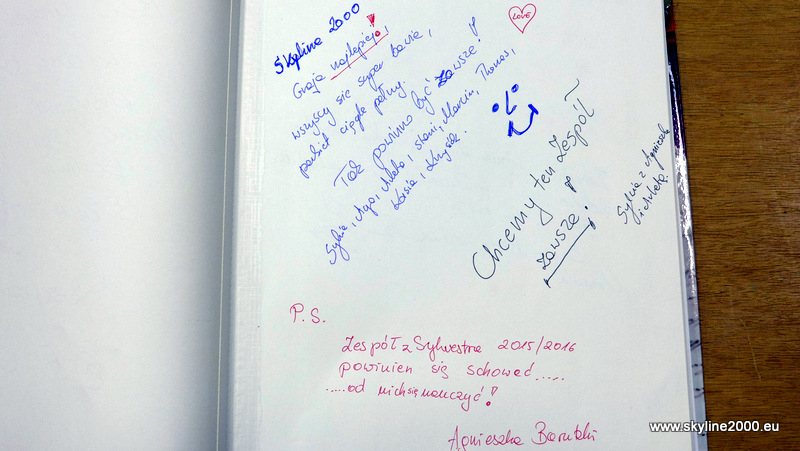 Skyline 2000
LOVE
Grają najlepiej!
wszyscy się super bawią,
parkiet ciągle pełny.
Tak powinno być zawsze!
Sylwia, Aga, Aneta, Sławi, Marcin, Thomas,
Kasia, Krzysiek.
Chcemy ten Zespół
zawsze!
Sylwia z Agnieszką
i Anetą.
P.S.
Zespół z Sylwestra 2015/2016
powinien się schować.....
.....od nich się nauczyć!
Agnieszka
www.skyline2000.eu